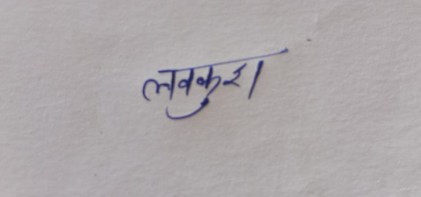 लवकुश